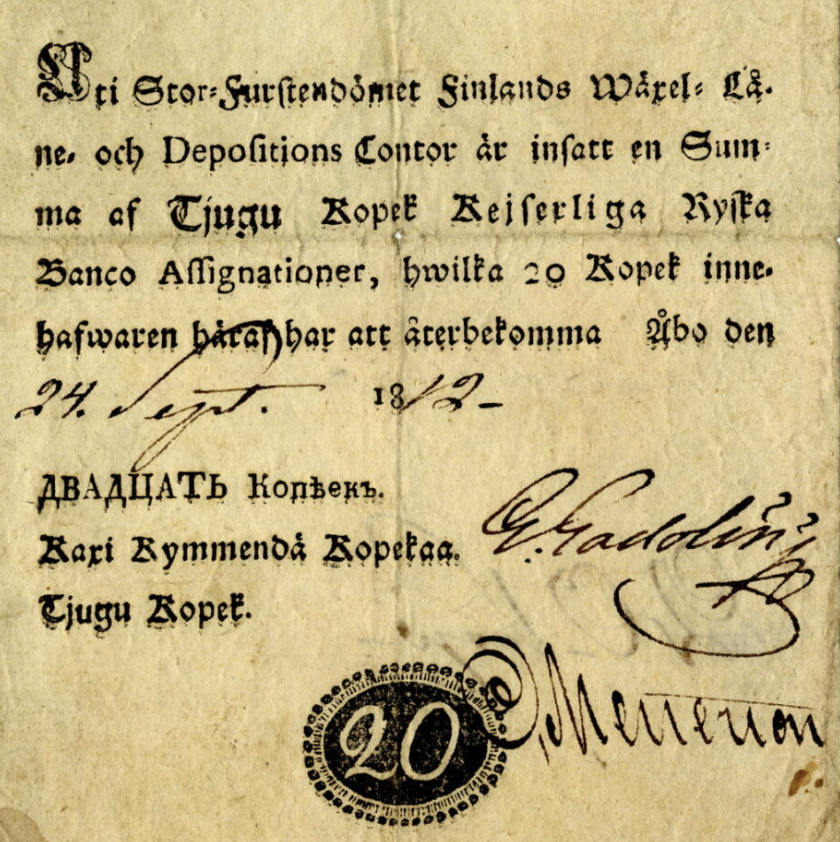 Uti Stor-Furstendömet Finlands Wäxel- Lå-
ne- och Depositions Contor är insatt en Sum-
ma af Tjugu Kopek Kejserliga Ryska
Banco Assignationer, hwilka 20 Kopek inne-
hafwaren häraf har att återbekomma Åbo den
24. Sept. 1812-
ДВАДЦАТЬ Копѣекъ.
Kaxi Kymmendä Kopekaa.
Tjugu Kopek.
G. Gadolin
20